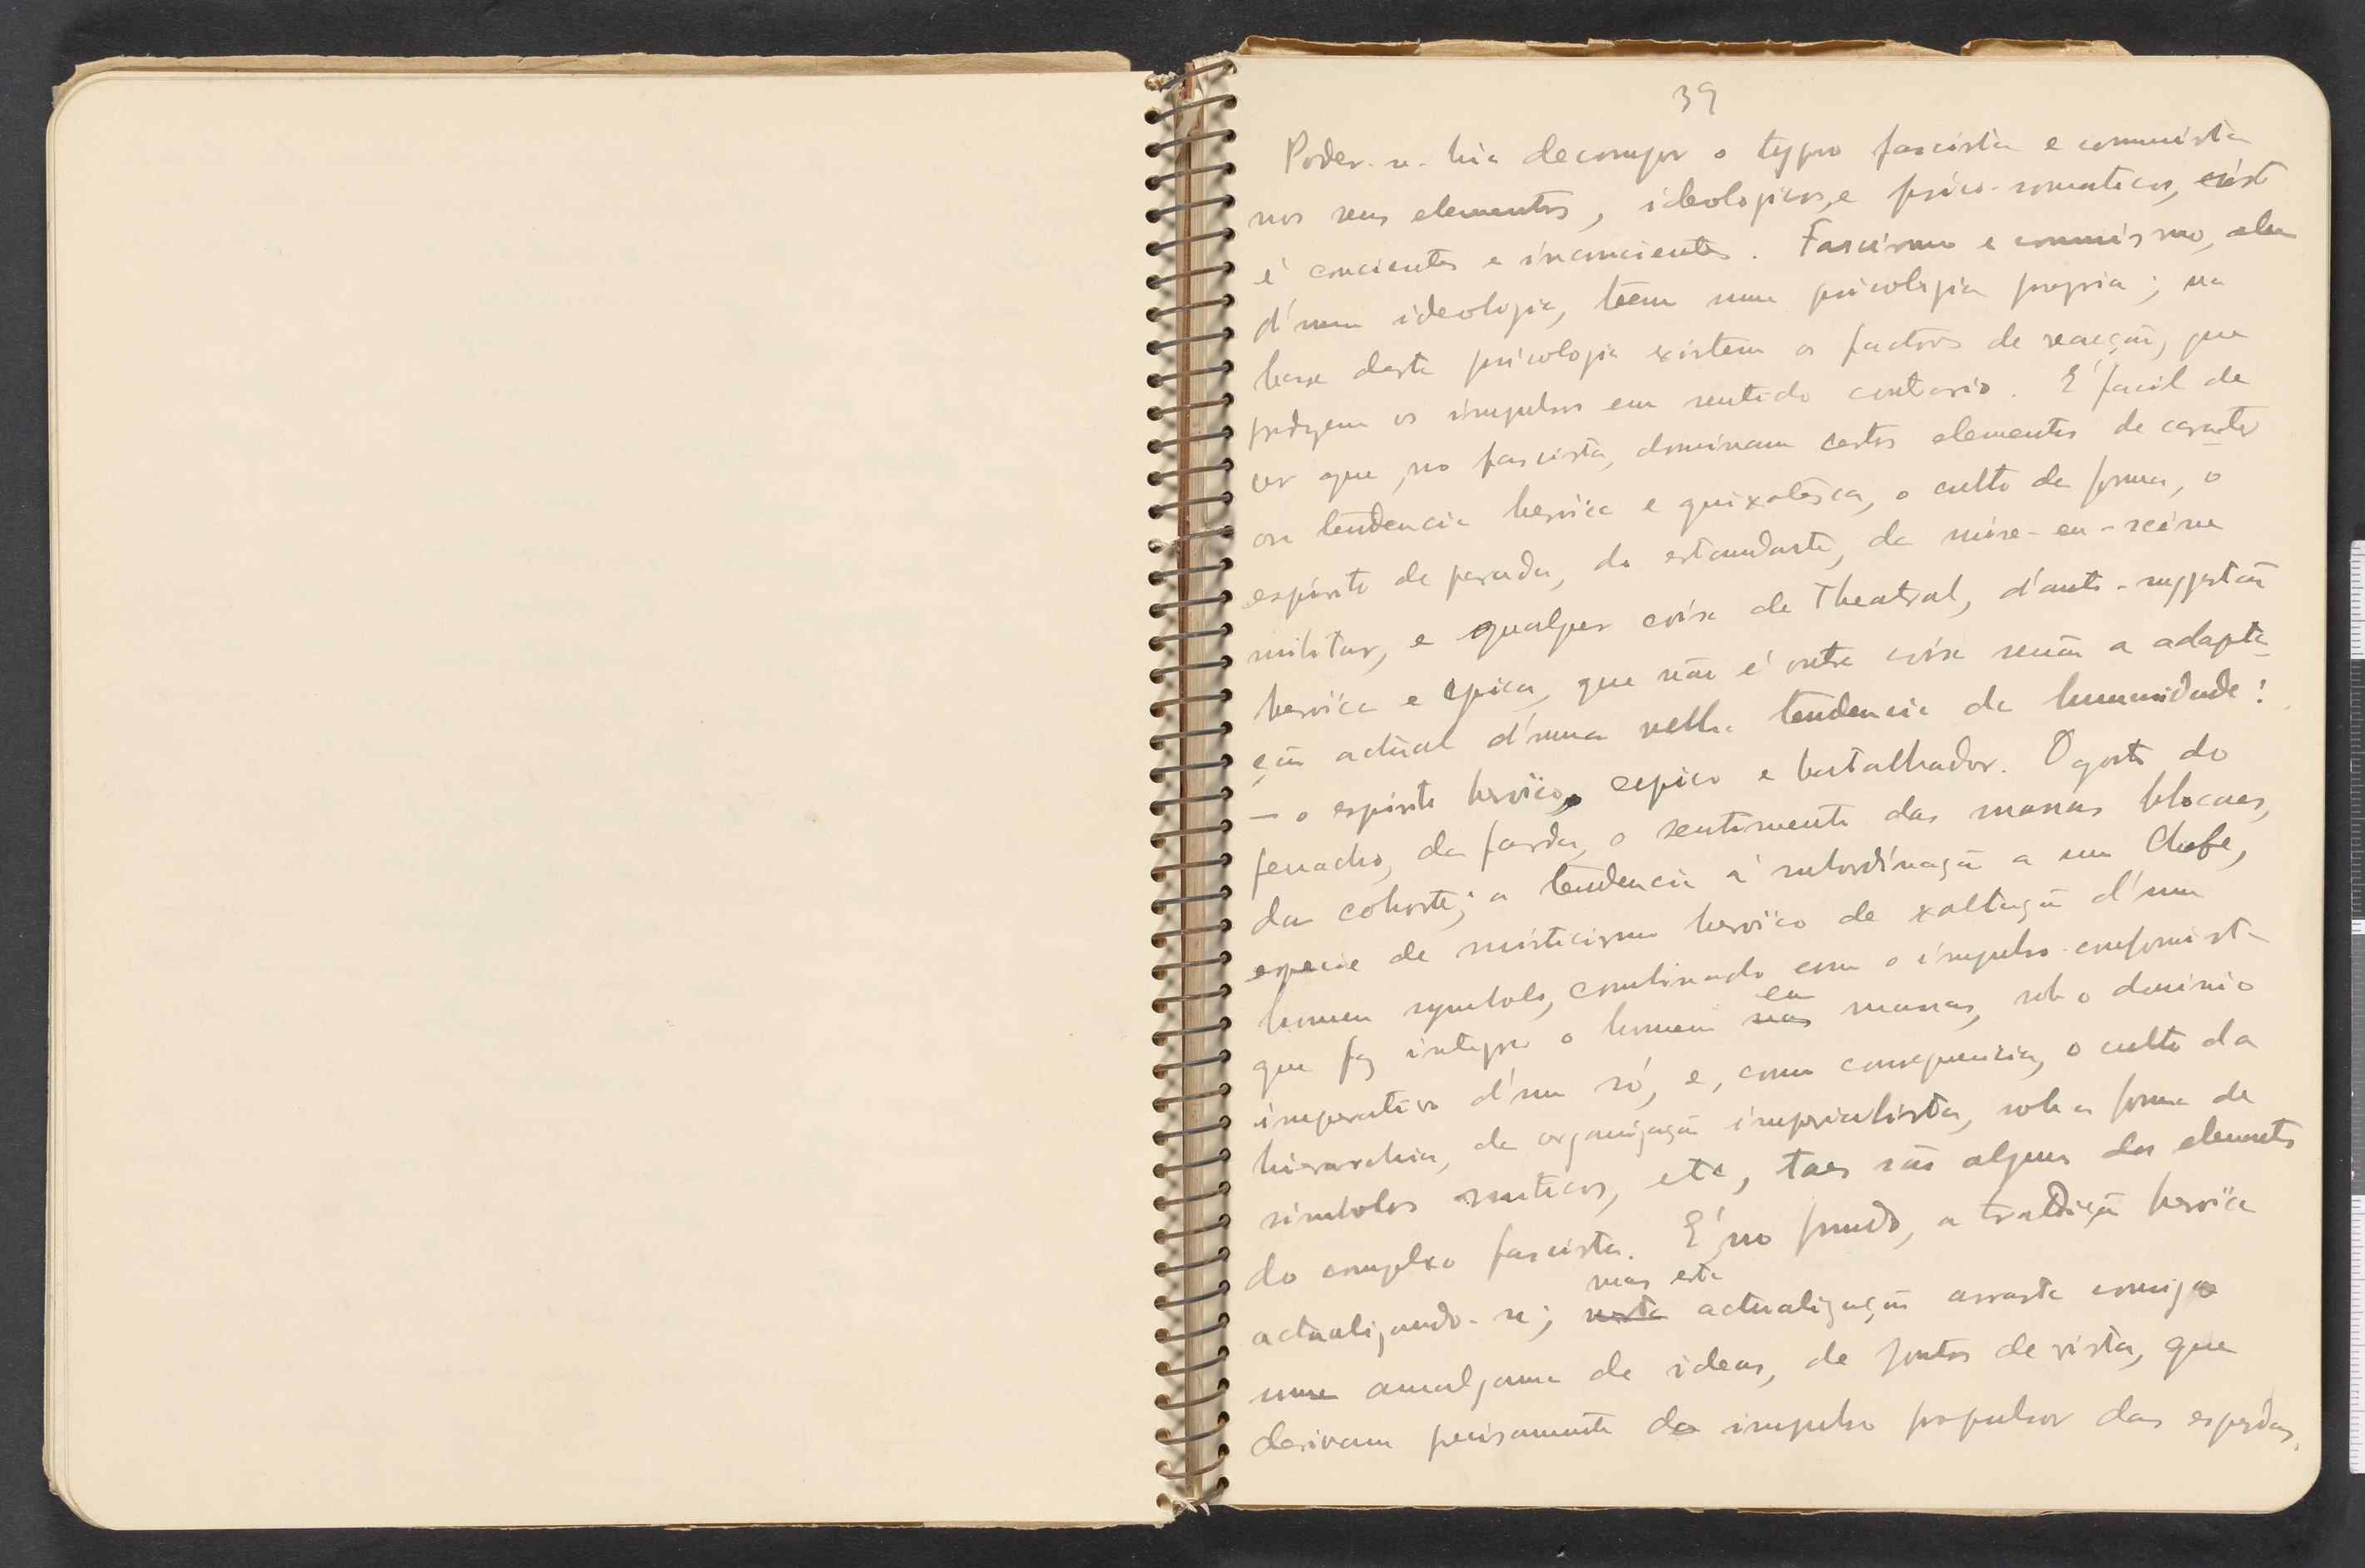 39
Poder-se-hia decompor o typo fascista e comunista
nos seus elementos, ideologicos, e psico-somaticos, isto
é concientes e inconcientes. Fascismo e comunismo, alem
d'uma ideologia, teem uma psicologia propria; na
base desta psicologia existem os factores de reacção, que
produzem os impulsos em sentido contrario. É facil de
ver que, no fascista, dominam certos elementos de caracter
ou tendencia heroïca e quixotesca, o culto da forma, o
espirito de parada, do estandarte, da mise-en-scéne
militar, e qualquer coisa de theatral, d'auto-suggestão
heroïca e epica, que não é outra coisa senão a adapta-
ção actual d'uma velha tendencia da humanidade:
— o espirito heroïco, epico e batalhador. O gosto do
penacho, da farda, o sentimento das massas blocaes,
da cohorte; a tendencia á subordinação a um Chefe,
especie de misticismo heroïco de exaltação d'um
homem symbolo, combinado com o impulso conformista
que faz integrar o homem nas em massas, sob o dominio
imperativo d'um só, e, como consequencia, o culto da
hierarchia, da organização imperialista, sob a forma de
simbolos miticos, etc, taes são alguns dos elementos
do complexo fascista. É, no fundo, a tradição heroïca
actualizando-se; nesta mas esta actualização arrasta comigo
uma amalgama de ideas, de pontos de vista, que
derivam precisamente do impulso propulsor das espadas.